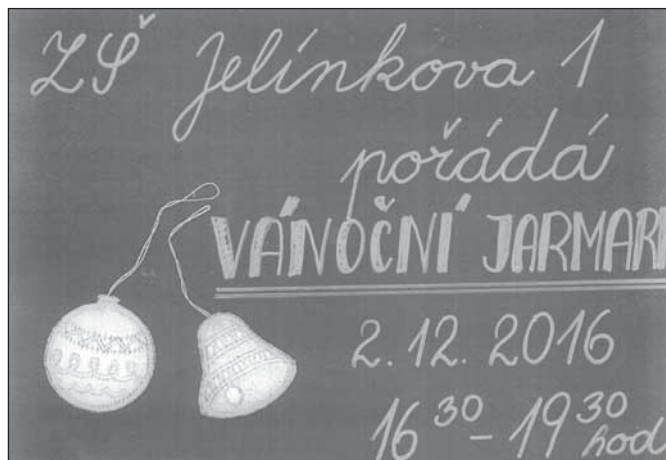 ZŠ Jelínkova 1
pořádá
VÁNOČNÍ JARMARK
2. 12. 2016
16 30 - 19 30 hod